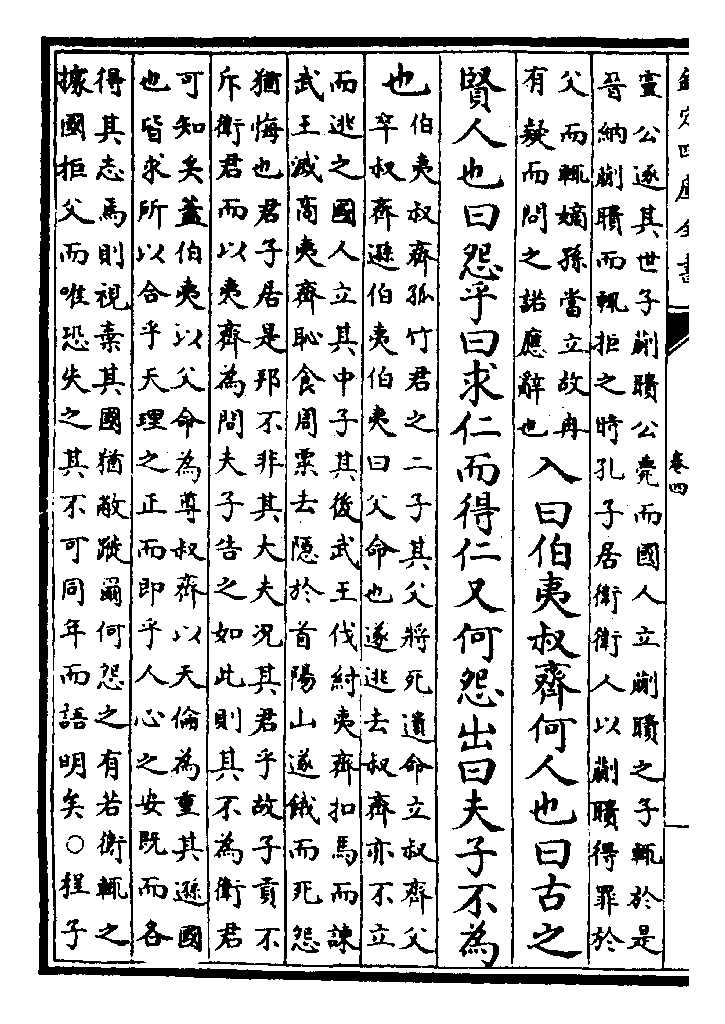 欽定四庫全書
卷四
靈公逐其世子蒯聵公薨而國人立蒯聵之子輒於是
晉納蒯聵而輒拒之時孔子居衛衛人以蒯聵得罪於
父而輒嫡孫當立故冉
有疑而問之諾應辭也
入曰伯夷叔齊何人也曰古之
賢人也曰怨乎曰求仁而得仁又何怨出曰夫子不為
也
伯夷叔齊孤竹君之二子其父將死遺命立叔齊父
卒叔齊遜伯夷伯夷曰父命也遂逃去叔齊亦不立
而逃之國人立其中子其後武王伐紂夷齊扣馬而諫
武王滅商夷齊恥食周粟去隱於首陽山遂餓而死怨
猶悔也君子居是邦不非其大夫況其君乎故子貢不
斥衛君而以夷齊為問夫子告之如此則其不為衛君
可知矣蓋伯夷以父命為尊叔齊以天倫為重其遜國
也皆求所以合乎天理之正而即乎人心之安既而各
得其志焉則視棄其國猶敝蹝爾何怨之有若衛輒之
據國拒父而唯恐失之其不可同年而語明矣○程子